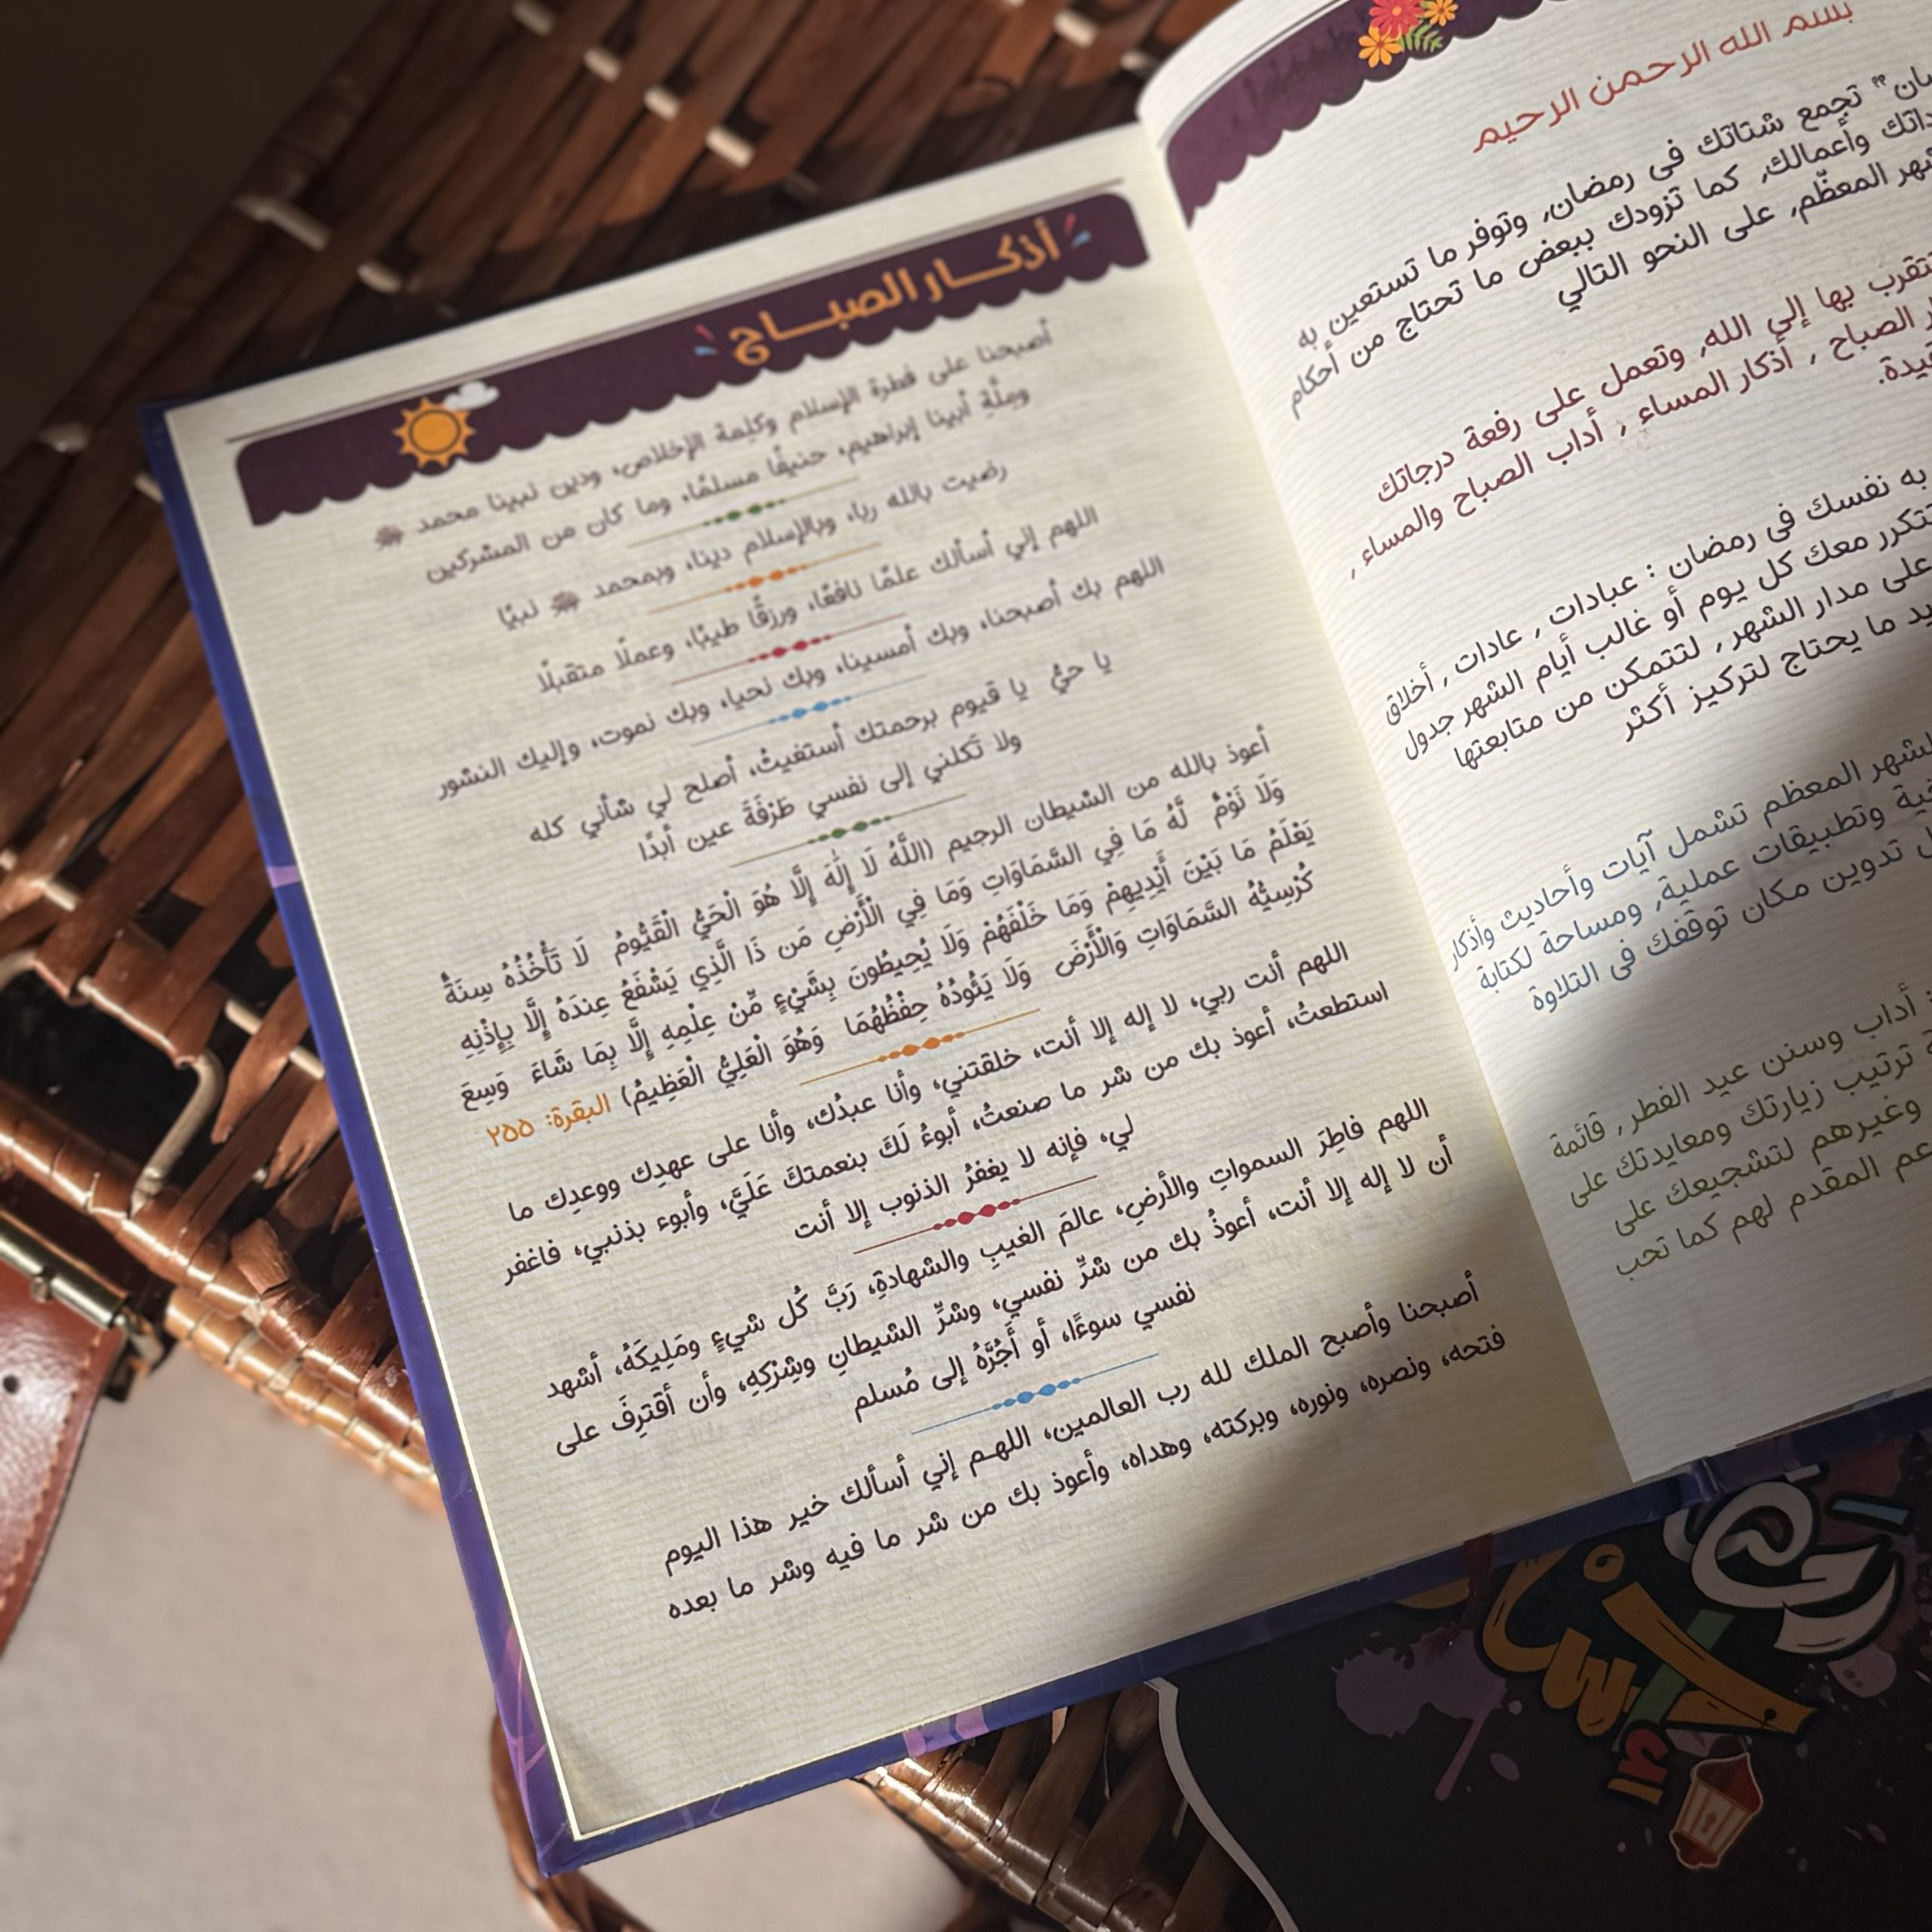 بسم الله الرحمن الرحيم
تجمع شتاتك فى رمضان, وتوفر ما تستعين به
وأعمالك, كما تزودك ببعض ما تحتاج من أحكام
المعظّم, على النحو التالي
بها إلى الله, وتعمل على رفعة درجاتك
الصباح , أذكار المساء , أداب الصباح والمساء ,
به نفسك فى رمضان : عبادات , عادات , أخلاق
معك كل يوم أو غالب أيام الشهر جدول
على مدار الشهر, لتتمكن من متابعتها
ما يحتاج لتركيز أكثر
المعظم تشمل آيات وأحاديث وأذكار
وتطبيقات عملية, ومساحة لكتابة
تدوين مكان توقفك فى التلاوة
أداب وسنن عيد الفطر, قائمة
ترتيب زيارتك ومعايدتك على
وغيرهم لتشجيعك على
المقدم لهم كما تحب
أذكـــار الصبـــاح
أصبحنا على فطرة الإسلام وكلمة الإخلاص، ودين نبينا محمد ﷺ
وملَّةِ أبينا إبراهيم، حنيفًا مسلمًا، وما كان من المشركين
رضيت بالله ربا، وبالإسلام دينا، وبمحمد ﷺ نبيًا
اللهم إني أسألك علمًا نافعًا، ورزقًا طيبًا، وعملًا متقبلًا
اللهم بك أصبحنا، وبك أمسينا، وبك نحيا، وبك نموت، وإليك النشور
يا حيُّ يا قيوم برحمتك أستغيثُ، أصلح لي شأني كله
ولا تَكلني إلى نفسي طَرْفَةَ عين أبدًا
أعوذ بالله من الشيطان الرجيم (اللَّهُ لَا إِلَٰهَ إِلَّا هُوَ الْحَيُّ الْقَيُّومُ لَا تَأْخُذُهُ سِنَةٌ
وَلَا نَوْمٌ لَّهُ مَا فِي السَّمَاوَاتِ وَمَا فِي الْأَرْضِ مَن ذَا الَّذِي يَشْفَعُ عِندَهُ إِلَّا بِإِذْنِهِ
يَعْلَمُ مَا بَيْنَ أَيْدِيهِمْ وَمَا خَلْفَهُمْ وَلَا يُحِيطُونَ بِشَيْءٍ مِّنْ عِلْمِهِ إِلَّا بِمَا شَاءَ وَسِعَ
كُرْسِيُّهُ السَّمَاوَاتِ وَالْأَرْضَ وَلَا يَئُودُهُ حِفْظُهُمَا وَهُوَ الْعَلِيُّ الْعَظِيمُ) البقرة: ٢٥٥
اللهم أنت ربي، لا إله إلا أنت، خلقتني، وأنا عبدُك، وأنا على عهدِك ووعدِك ما
استطعتُ، أعوذ بك من شر ما صنعتُ، أبوءُ لَكَ بنعمتكَ عَلَيَّ، وأبوء بذنبي، فاغفر
لي، فإنه لا يغفرُ الذنوب إلا أنت
اللهم فاطِرَ السمواتِ والأرضِ، عالمَ الغيبِ والشهادةِ، رَبَّ كُل شيءٍ ومَلِيكَهُ، أشهد
أن لا إله إلا أنت، أعوذُ بك من شرِّ نفسي، وشرِّ الشيطانِ وشِرْكِهِ، وأن أقترِفَ على
نفسي سوءًا، أو أَجُرَّهُ إلى مُسلم
أصبحنا وأصبح الملك لله رب العالمين، اللهـم إني أسألك خير هذا اليوم
فتحه، ونصره، ونوره، وبركته، وهداه، وأعوذ بك من شر ما فيه وشر ما بعده